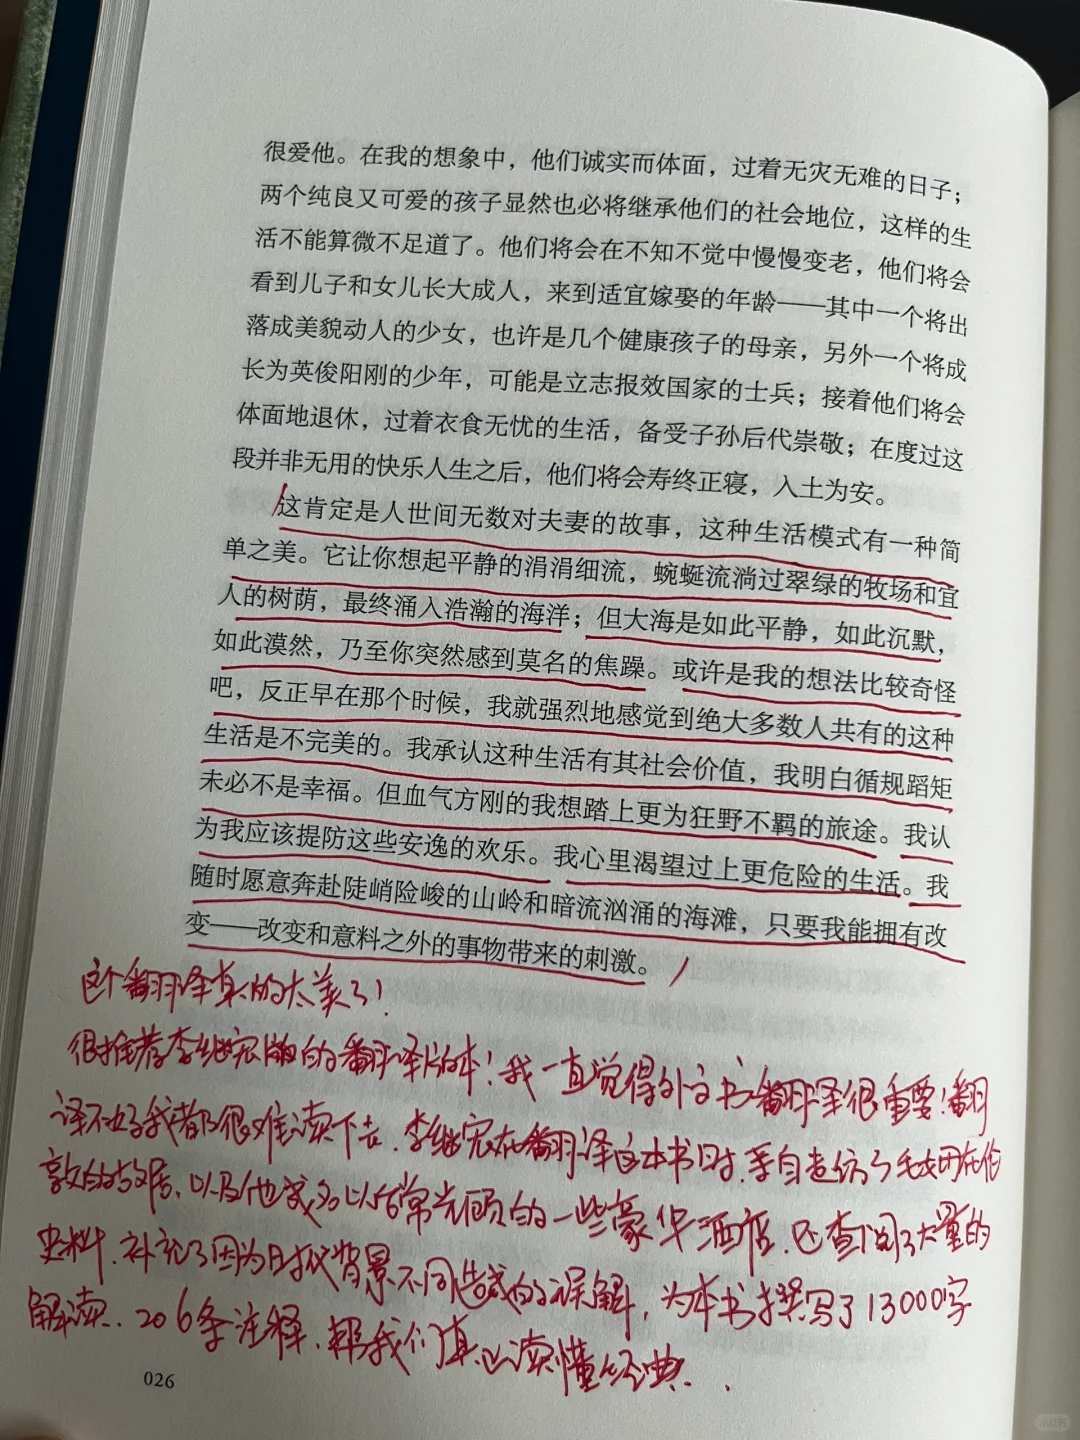 很爱他。在我的想象中，他们诚实而体面，过着无灾无难的日子；
两个纯良又可爱的孩子显然也必将继承他们的社会地位，这样的生
活不能算微不足道了。他们将会在不知不觉中慢慢变老，他们将会
看到儿子和女儿长大成人，来到适宜嫁娶的年龄——其中一个将出
落成美貌动人的少女，也许是几个健康孩子的母亲，另外一个将成
长为英俊阳刚的少年，可能是立志报效国家的士兵；接着他们将会
体面地退休，过着衣食无忧的生活，备受子孙后代崇敬；在度过这
段并非无用的快乐人生之后，他们将会寿终正寝，入土为安。
这肯定是人世间无数对夫妻的故事，这种生活模式有一种简
单之美。它让你想起平静的涓涓细流，蜿蜒流淌过翠绿的牧场和宜
人的树荫，最终涌入浩瀚的海洋；但大海是如此平静，如此沉默，
如此漠然，乃至你突然感到莫名的焦躁。或许是我的想法比较奇怪
吧，反正早在那个时候，我就强烈地感觉到绝大多数人共有的这种
生活是不完美的。我承认这种生活有其社会价值，我明白循规蹈矩
未必不是幸福。但血气方刚的我想踏上更为狂野不羁的旅途。我认
为我应该提防这些安逸的欢乐。我心里渴望过上更危险的生活。我
随时愿意奔赴陡峭险峻的山岭和暗流汹涌的海滩，只要我能拥有改
变——改变和意料之外的事物带来的刺激。
这个翻译真的太美了！
很推荐李继宏版的翻译版本！我一直觉得外文书翻译很重要！翻
译不好我都很难读下去.李继宏在翻译这本书时.亲自造访了毛姆在伦
敦的故居、以及他成名以后常光顾的一些豪华酒店.还查阅了大量的
史料.补记了因为时代背景不同造成的误解，为本书撰写了13000字
解读.206条注释.帮我们真心读懂经典..
026
小红书